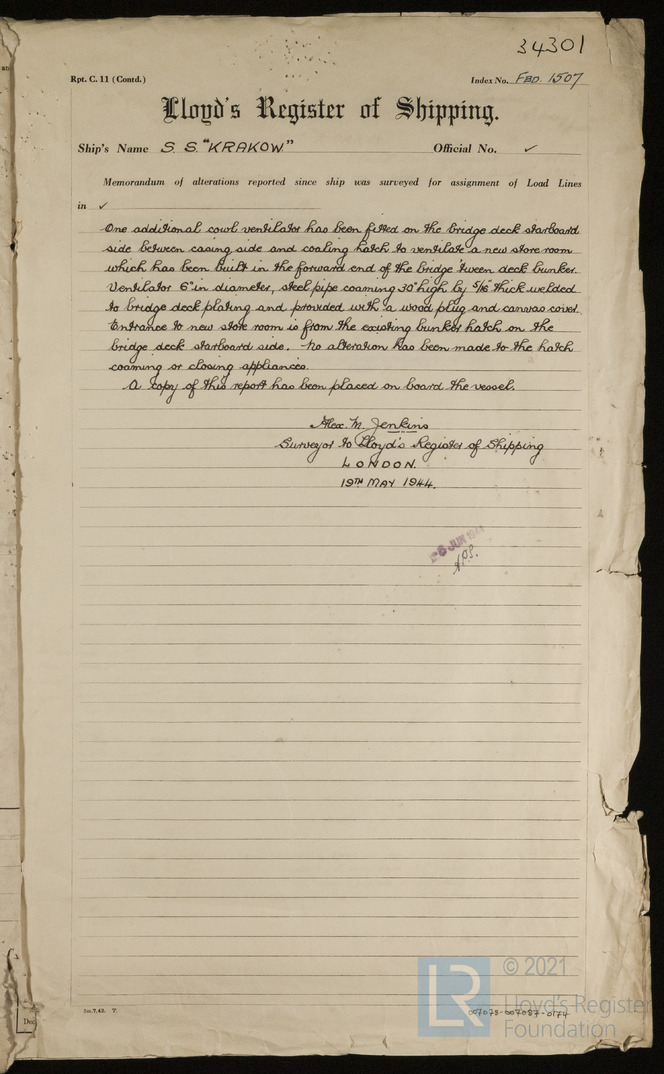 34301
Rpt. C. 11 (Contd.)
Index No. FBD. 1507
Lloyd's Register of Shipping.
Ship's Name S. S. "KRAKOW." Official No. ✓
Memorandum of alterations reported since ship was surveyed for assignment of Load Lines
in ✓
One additional cowl ventilator has been fitted on the bridge deck starboard
side between casing side and coaling hatch to ventilate a new store room
which has been built in the forward end of the bridge 'tween deck bunker.
Ventilator 6" in diameter, steel pipe coaming 30" high by 5/16" thick welded
to bridge deck plating and provided with a wood plug and canvas cover.
Entrance to new store room is from the existing bunker hatch on the
bridge deck starboard side. No alteration has been made to the hatch
coaming or closing appliances.
A copy of this report has been placed on board the vessel.
Alex. M. Jenkins
Surveyor to Lloyd's Register of Shipping
LONDON.
19TH MAY 1944.
JUN 1944
© 2021
Lloyd's Register
Foundation
2m.7.42. 7.
007078-007087-0174